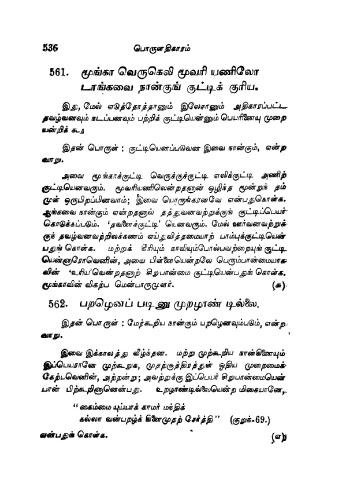 536 பொருளதிகாரம்
561. மூங்கா வெருகெலி மூவரி யணிலோ
டாங்கவை நான்குங் குட்டிக் குரிய.
இது, மேல் எடுத்தோத்தானும் இலேசானும் அதிகாரப்பட்ட
தவழ்வனவும் நடப்பனவும் பற்றிக் குட்டியென்னும் பெயரினைய முறை
யன்றிக்
இதன் பொருள் : குட்டியெனப்படுவன இவை நான்கும், என்ற
வாறு.
அவை மூங்காக்குட்டி வெருக்குக்குட்டி எலிக்குட்டி அணிற்
குட்டியெனவரும். மூவரியணிலென்றதனான் ஒழிந்த மூன்றுந் தம்
முன் ஒருபிறப்பினவாம்; இவை பொருந்காரணமே என்பதுகொள்க.
ஆங்கவை நான்கும் என்றதனால் தத்துவனவற்றுக்குங் குட்டிப்பெயர்
கொடுக்கப்படும். 'தவளைக்குட்டி' யெனவரும். மேல் ஊர்வனவற்றுக்
குந் தவழ்வனவற்றிலக்கணம் எய்துவித்தமையாற் பாம்புக்குட்டியென்
பதுங் கொள்க. மற்றக் கீரியும் நாவியும்போல்வனவற்றையுங் குட்டி
யென்னாரோவெனின், அவை பிள்ளையென்றலே பெரும்பான்மையாக
லின் 'உரிய'வென்றதனாற் சிறுபான்மை குட்டியென்பதுங் கொள்க.
மூங்காவின் விகற்ப மென்பாருமுளர். (௬)
562. பறழெனப் படினு முறழாண் டில்லை.
இதன் பொருள் : மேற்கூறிய நான்கும் பறழெனவும்படும், என்ற
வாறு.
இவை இக்காலத்து வீழ்ந்தன. மற்று முற்கூறிய நான்கினையும்
இப்பெயரானே முற்கூறுக, முதற்சூத்திரத்துள் ஓதிய முறைமைக்
கேற்பவெனின், அற்றன்று; அவற்றுக்கு இப்பெயர் சிறுபான்மையென்
பான் பிற்கூறினானென்பது. உறழாண்டில்லையென்ற மிகையானே,
“கைம்மை யுய்யாக் காமர் மந்திக்
கல்லா வன்பறழ்க் கிளைமுதற் சேர்த்தி” (குறுந்-69.)
என்பதுங் கொள்க. (௭)